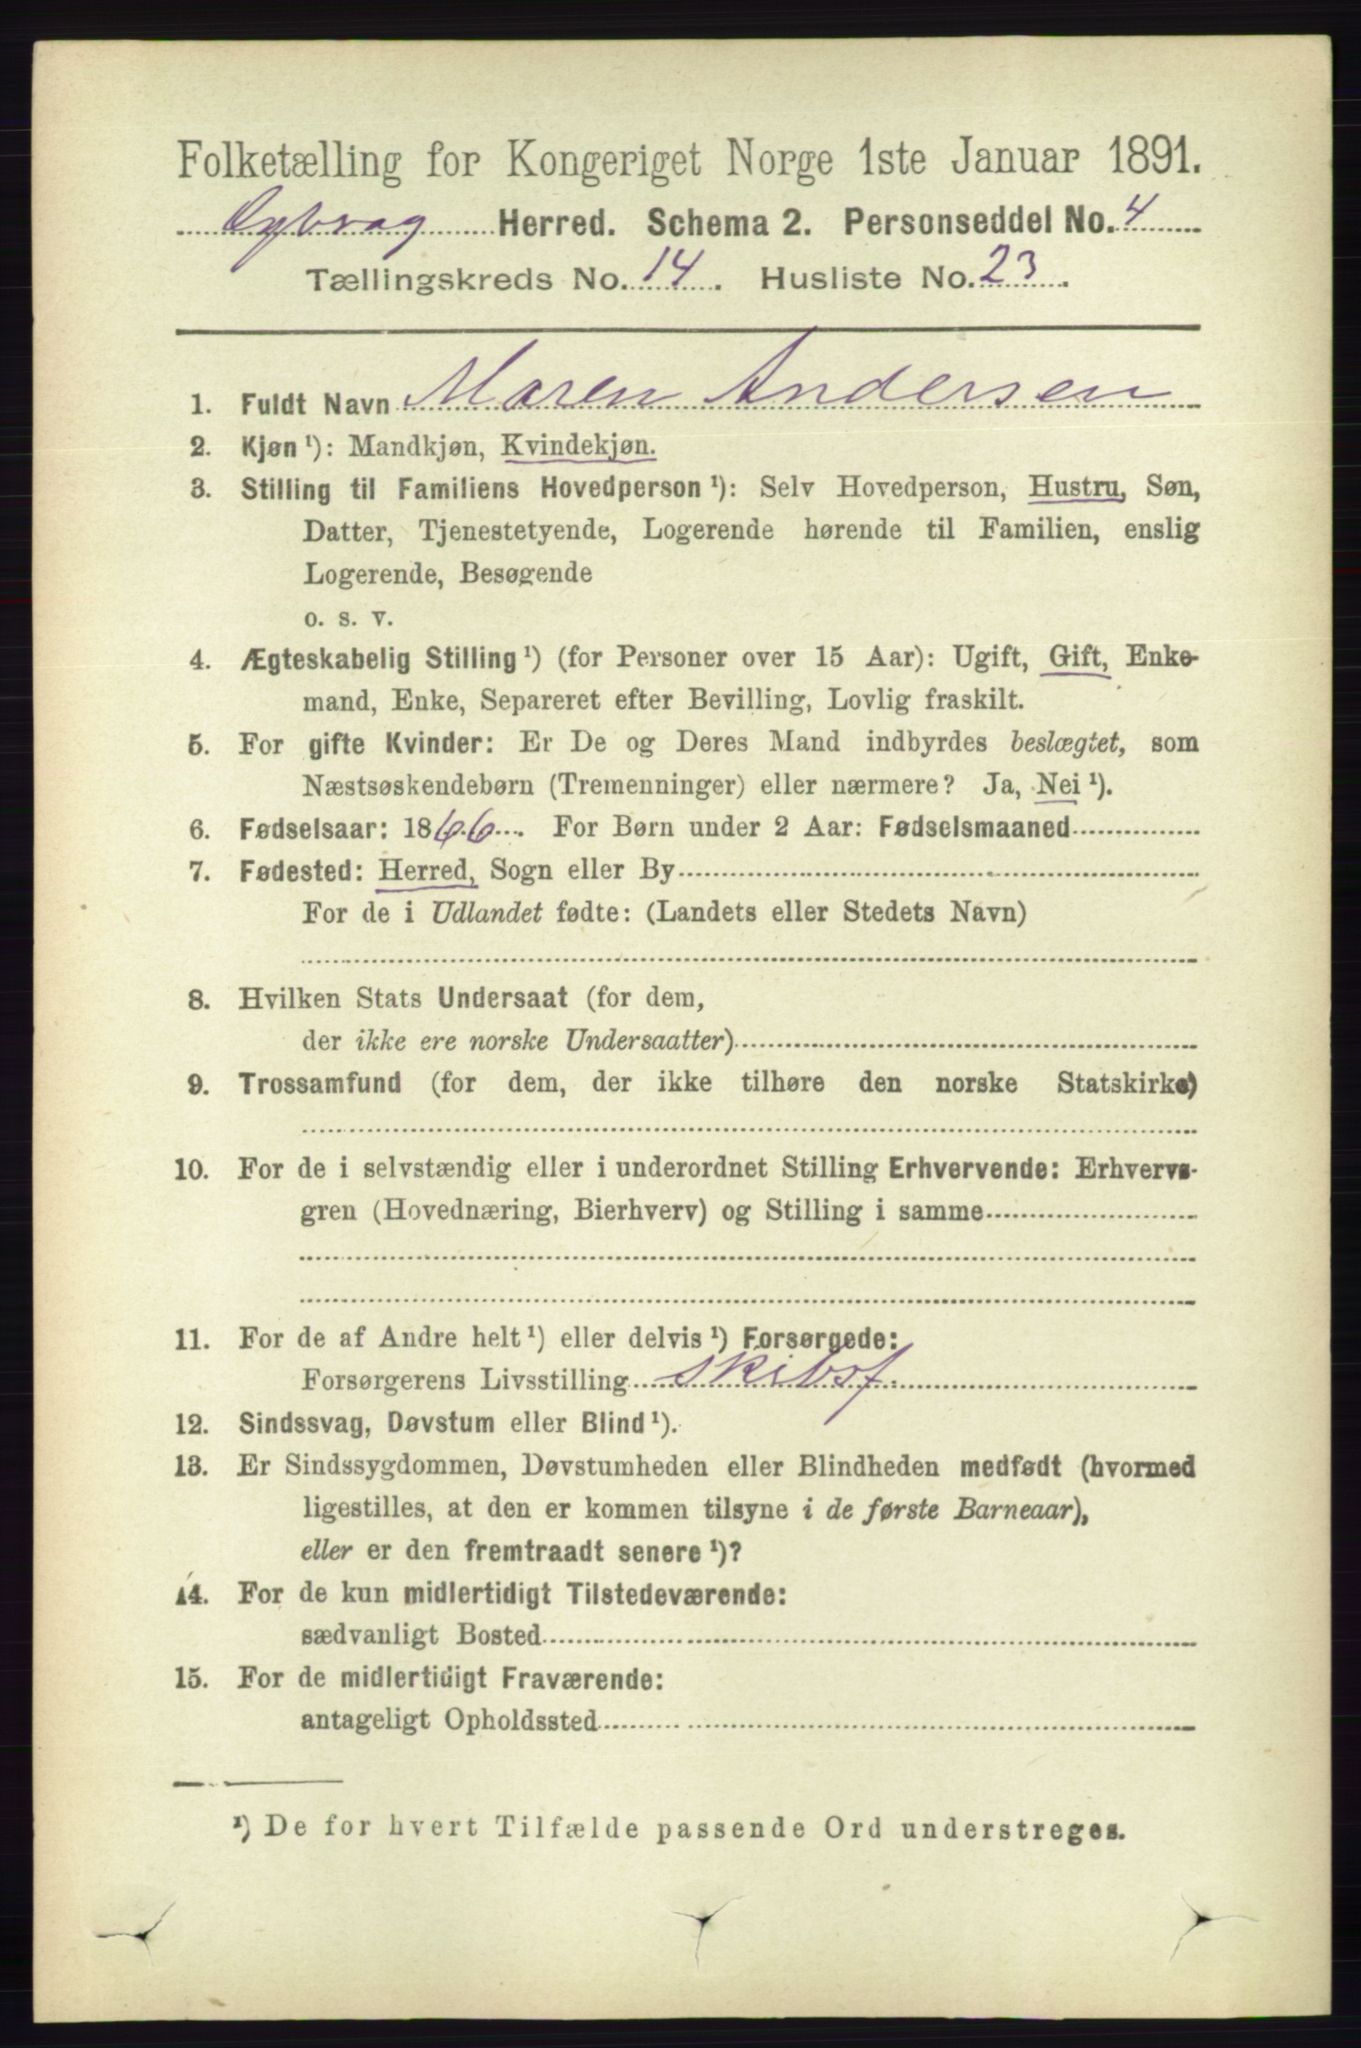 Folketælling for Kongeriget Norge 1ste Januar 1891.
Dybvag Herred. Schema 2. Personseddel No. 4
Tællingskreds No. 14. Husliste No. 23.
1. Fuldt Navn Maren Andersen
2. Kjøn ¹): Mandkjøn, Kvindekjøn.
3. Stilling til Familiens Hovedperson ¹): Selv Hovedperson, Hustru, Søn,
Datter, Tjenestetyende, Logerende hørende til Familien, enslig
Logerende, Besøgende
o. s. v.
4. Ægteskabelig Stilling ¹) (for Personer over 15 Aar): Ugift, Gift, Enke-
mand, Enke, Separeret efter Bevilling, Lovlig fraskilt.
5. For gifte Kvinder: Er De og Deres Mand indbyrdes beslægtet, som
Næstsøskendebørn (Tremenninger) eller nærmere? Ja, Nei ¹).
6. Fødselsaar: 1866. For Børn under 2 Aar: Fødselsmaaned
7. Fødested: Herred, Sogn eller By
For de i Udlandet fødte: (Landets eller Stedets Navn)
8. Hvilken Stats Undersaat (for dem,
der ikke ere norske Undersaatter)
9. Trossamfund (for dem, der ikke tilhøre den norske Statskirke)
10. For de i selvstændig eller i underordnet Stilling Erhvervende: Erhvervs-
gren (Hovednæring, Bierhverv) og Stilling i samme
11. For de af Andre helt ¹) eller delvis ¹) Forsørgede:
Forsørgerens Livsstilling skibsf.
12. Sindssvag, Døvstum eller Blind ¹).
13. Er Sindssygdommen, Døvstumheden eller Blindheden medfødt (hvormed
ligestilles, at den er kommen tilsyne i de første Barneaar),
eller er den fremtraadt senere ¹)?
14. For de kun midlertidigt Tilstedeværende:
sædvanligt Bosted
15. For de midlertidigt Fraværende:
antageligt Opholdssted
¹) De for hvert Tilfælde passende Ord understreges.